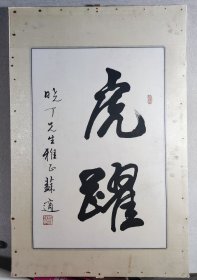 虎躍
晓丁先生雅正 蘇適